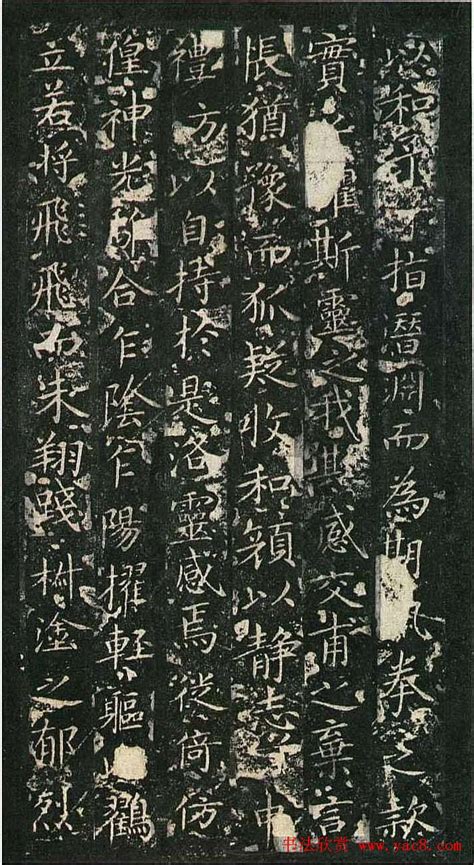 以和予兮指潛淵而為期執拳之款
實兮懼斯靈之我其感交甫之棄言
悵猶豫而狐疑收和顏以静志兮申
禮方以自持於是洛靈感焉徙倚仿
偟神光離合乍陰乍陽擢軽軀以鸖
立若将飛飛而未翔踐椒塗之郁烈
书法欣赏 www.yac8.com